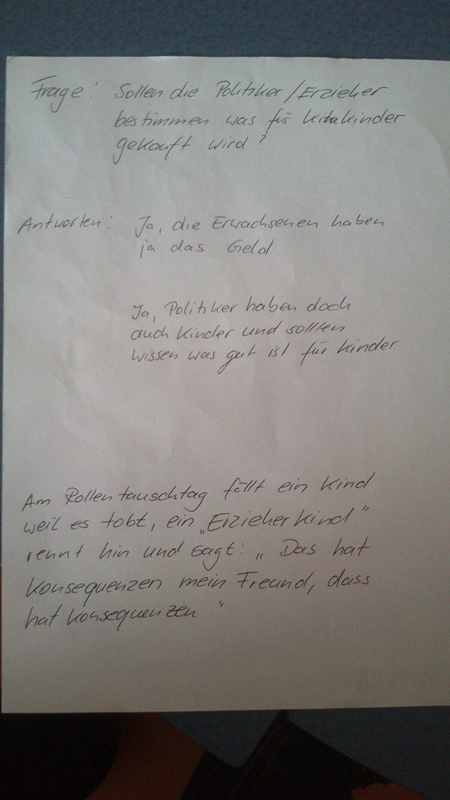 Frage: Sollen die Politiker/Erzieher
bestimmen was für Kitakinder
gekauft wird?
Antworten: Ja, die Erwachsenen haben
ja das Geld
Ja, Politiker haben doch
auch Kinder und sollten
wissen was gut ist für Kinder
Am Rollentauschtag fällt ein Kind
weil es tobt, ein „Erzieherkind“
rennt hin und sagt: „Das hat
Konsequenzen mein Freund, dass
hat Konsequenzen“